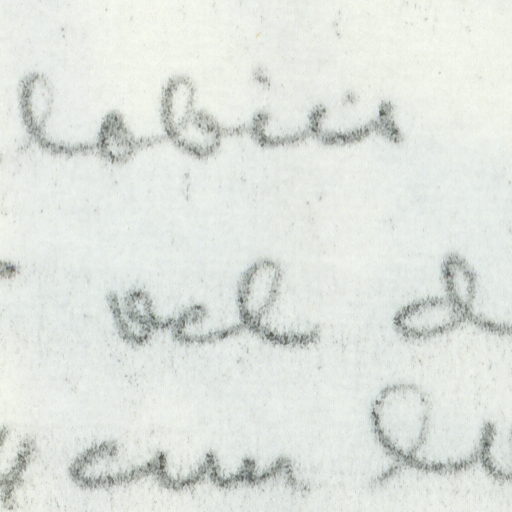 labiis
vel d
cum lu